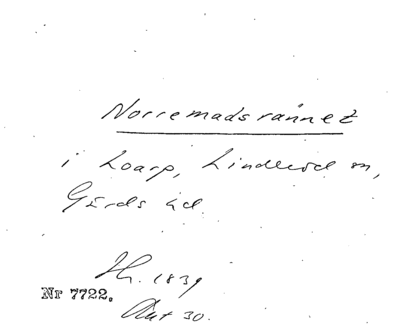 Norremadsrännet
i Loarp, Linderöd sn,
Gärds hd.
Th. 1839
Nr 7722.
Akt 30.